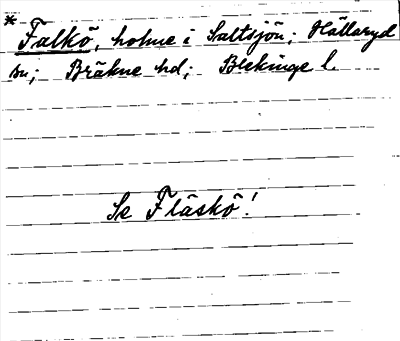 * Falkö, holme i Saltsjön; Hällaryd
sn; Bräkne hd; Blekinge l.
Se Fläskö!